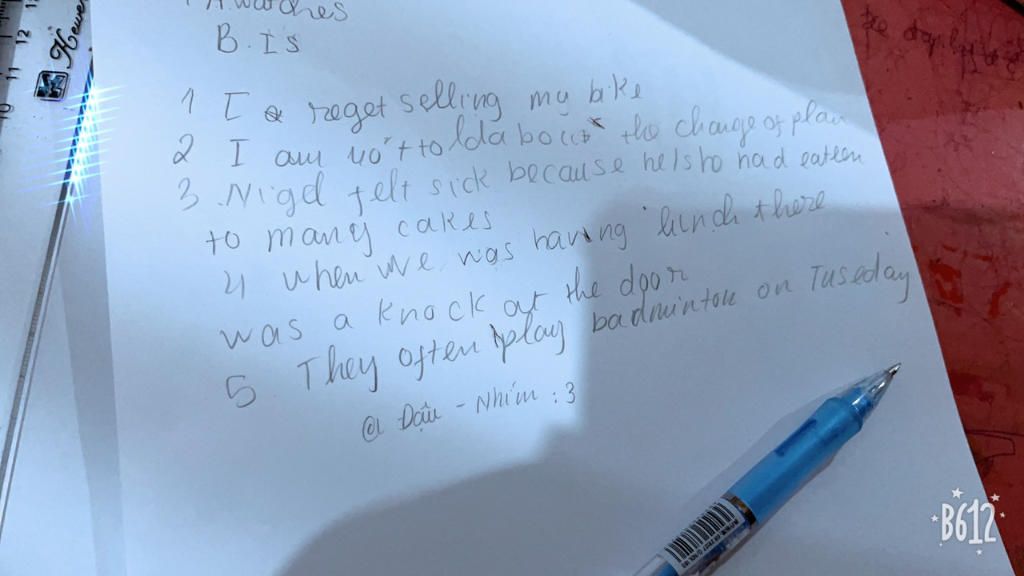 A watches
B. Is
1 I reget selling my bike
2 I am not told about the change of plan
3. Nigel felt sick because he had eaten
to many cakes
4 when we was having lunch there
was a knock at the door
5 They often play badminton on Tuseday
@ Đậu - Nhím : 3
B612